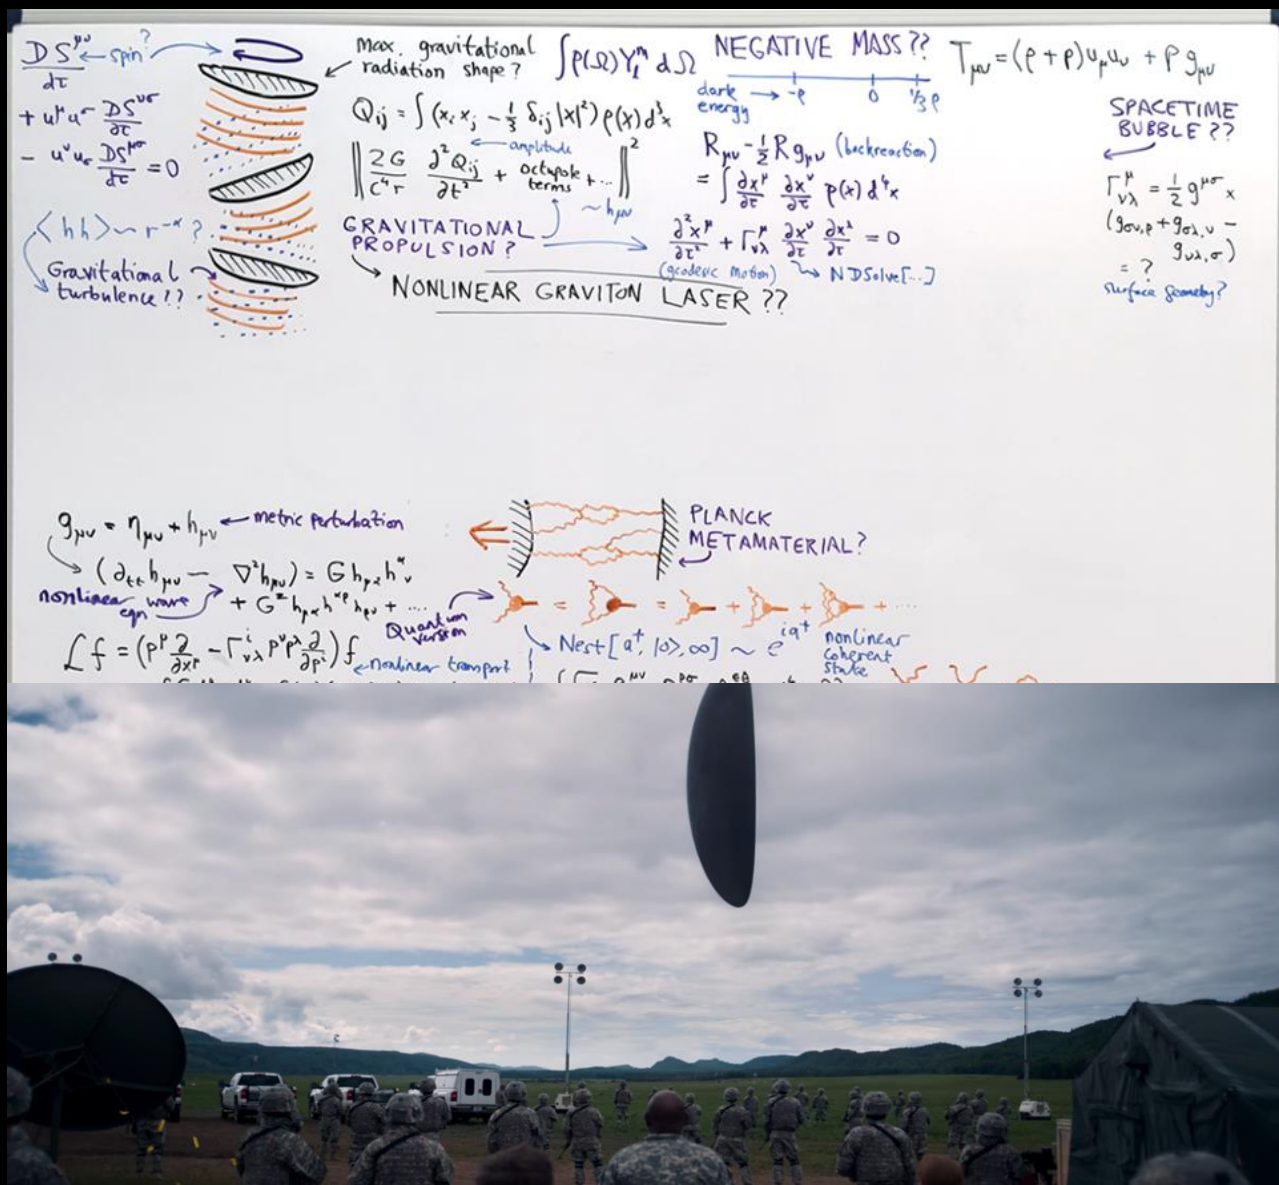 DS^μν/dτ ← spin?
+ u^μ u_σ DS^νσ/dτ
− u^ν u_σ DS^μσ/dτ = 0
<hh> ~ r^-α ?
Gravitational
turbulence!?
Max. gravitational
radiation shape?
∫ρ(Ω)Y_l^m dΩ
Q_ij = ∫(x_i x_j − 1/3 δ_ij |x|²) ρ(x) d³x
← amplitude
‖ 2G/c⁴r ∂²Q_ij/∂t² + octupole terms + ... ‖²
~ h_μν
GRAVITATIONAL
PROPULSION?
NONLINEAR GRAVITON LASER ??
NEGATIVE MASS??
dark energy → -ρ 0 1/3 ρ
R_μν − 1/2 R g_μν (backreaction)
= ∫ ∂x^μ/∂τ ∂x^ν/∂τ ρ(x) d⁴x
∂²x^μ/∂τ² + Γ^μ_νλ ∂x^ν/∂τ ∂x^λ/∂τ = 0
(geodesic motion) → NDSolve[...]
T_μν = (ρ + p) u_μ u_ν + p g_μν
SPACETIME
BUBBLE??
Γ^μ_νλ = 1/2 g^μσ ×
(g_σν,ρ + g_σλ,ν −
g_νλ,σ)
= ?
surface geometry?
g_μν = η_μν + h_μν ← metric perturbation
(∂_tt h_μν − ∇²h_μν) = G h_μα h^α_ν
nonlinear wave eqn
+ G² h_μα h^αρ h_ρν + ....
ℒf = (p^μ ∂/∂x^μ − Γ^i_νλ p^ν p^λ ∂/∂p^i) f
← nonlinear transport
PLANCK
METAMATERIAL?
Quantum
version
= = + + + ....
Nest[a⁺, |0>, ∞] ~ e^ia⁺
nonlinear
coherent
state